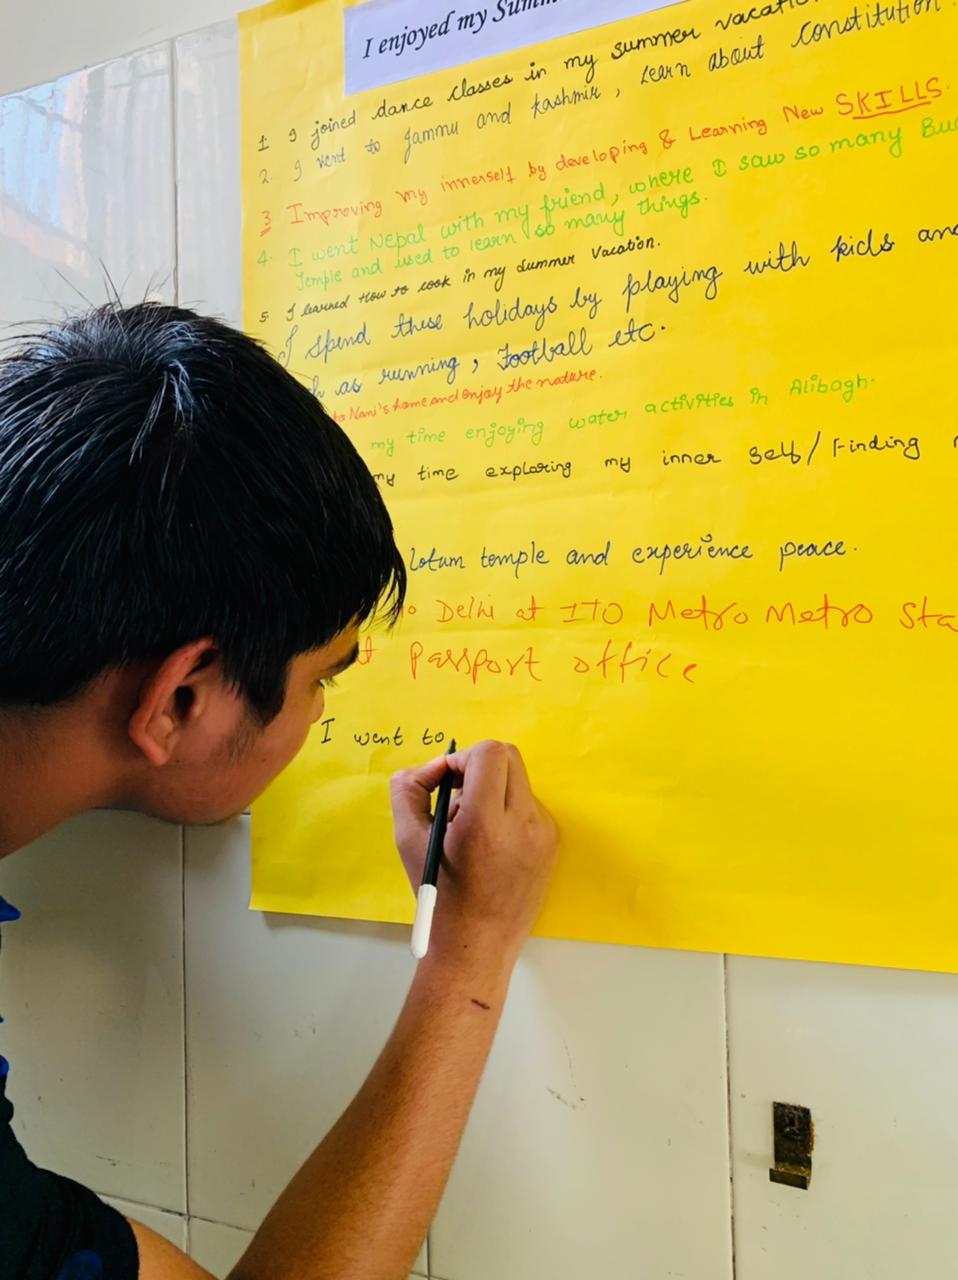 I enjoyed my Summ
1. I joined dance classes in my summer vacation
2. I went to Jammu and Kashmir, Learn about Constitution.
3 Improving my innerself by developing & Learning New SKILLS.
4. I went Nepal with my friend, where I saw so many Bud
Temple and used to learn so many things.
5. I learned How to cook in my summer Vacation.
I spend these holidays by playing with kids and
h as running, Football etc.
to Nani's home and enjoy the nature.
my time enjoying water activities in Alibagh.
my time exploring my inner self/Finding
lotum temple and experience peace.
o Delhi at ITO Metro Metro Sta
at Passport office
I went to